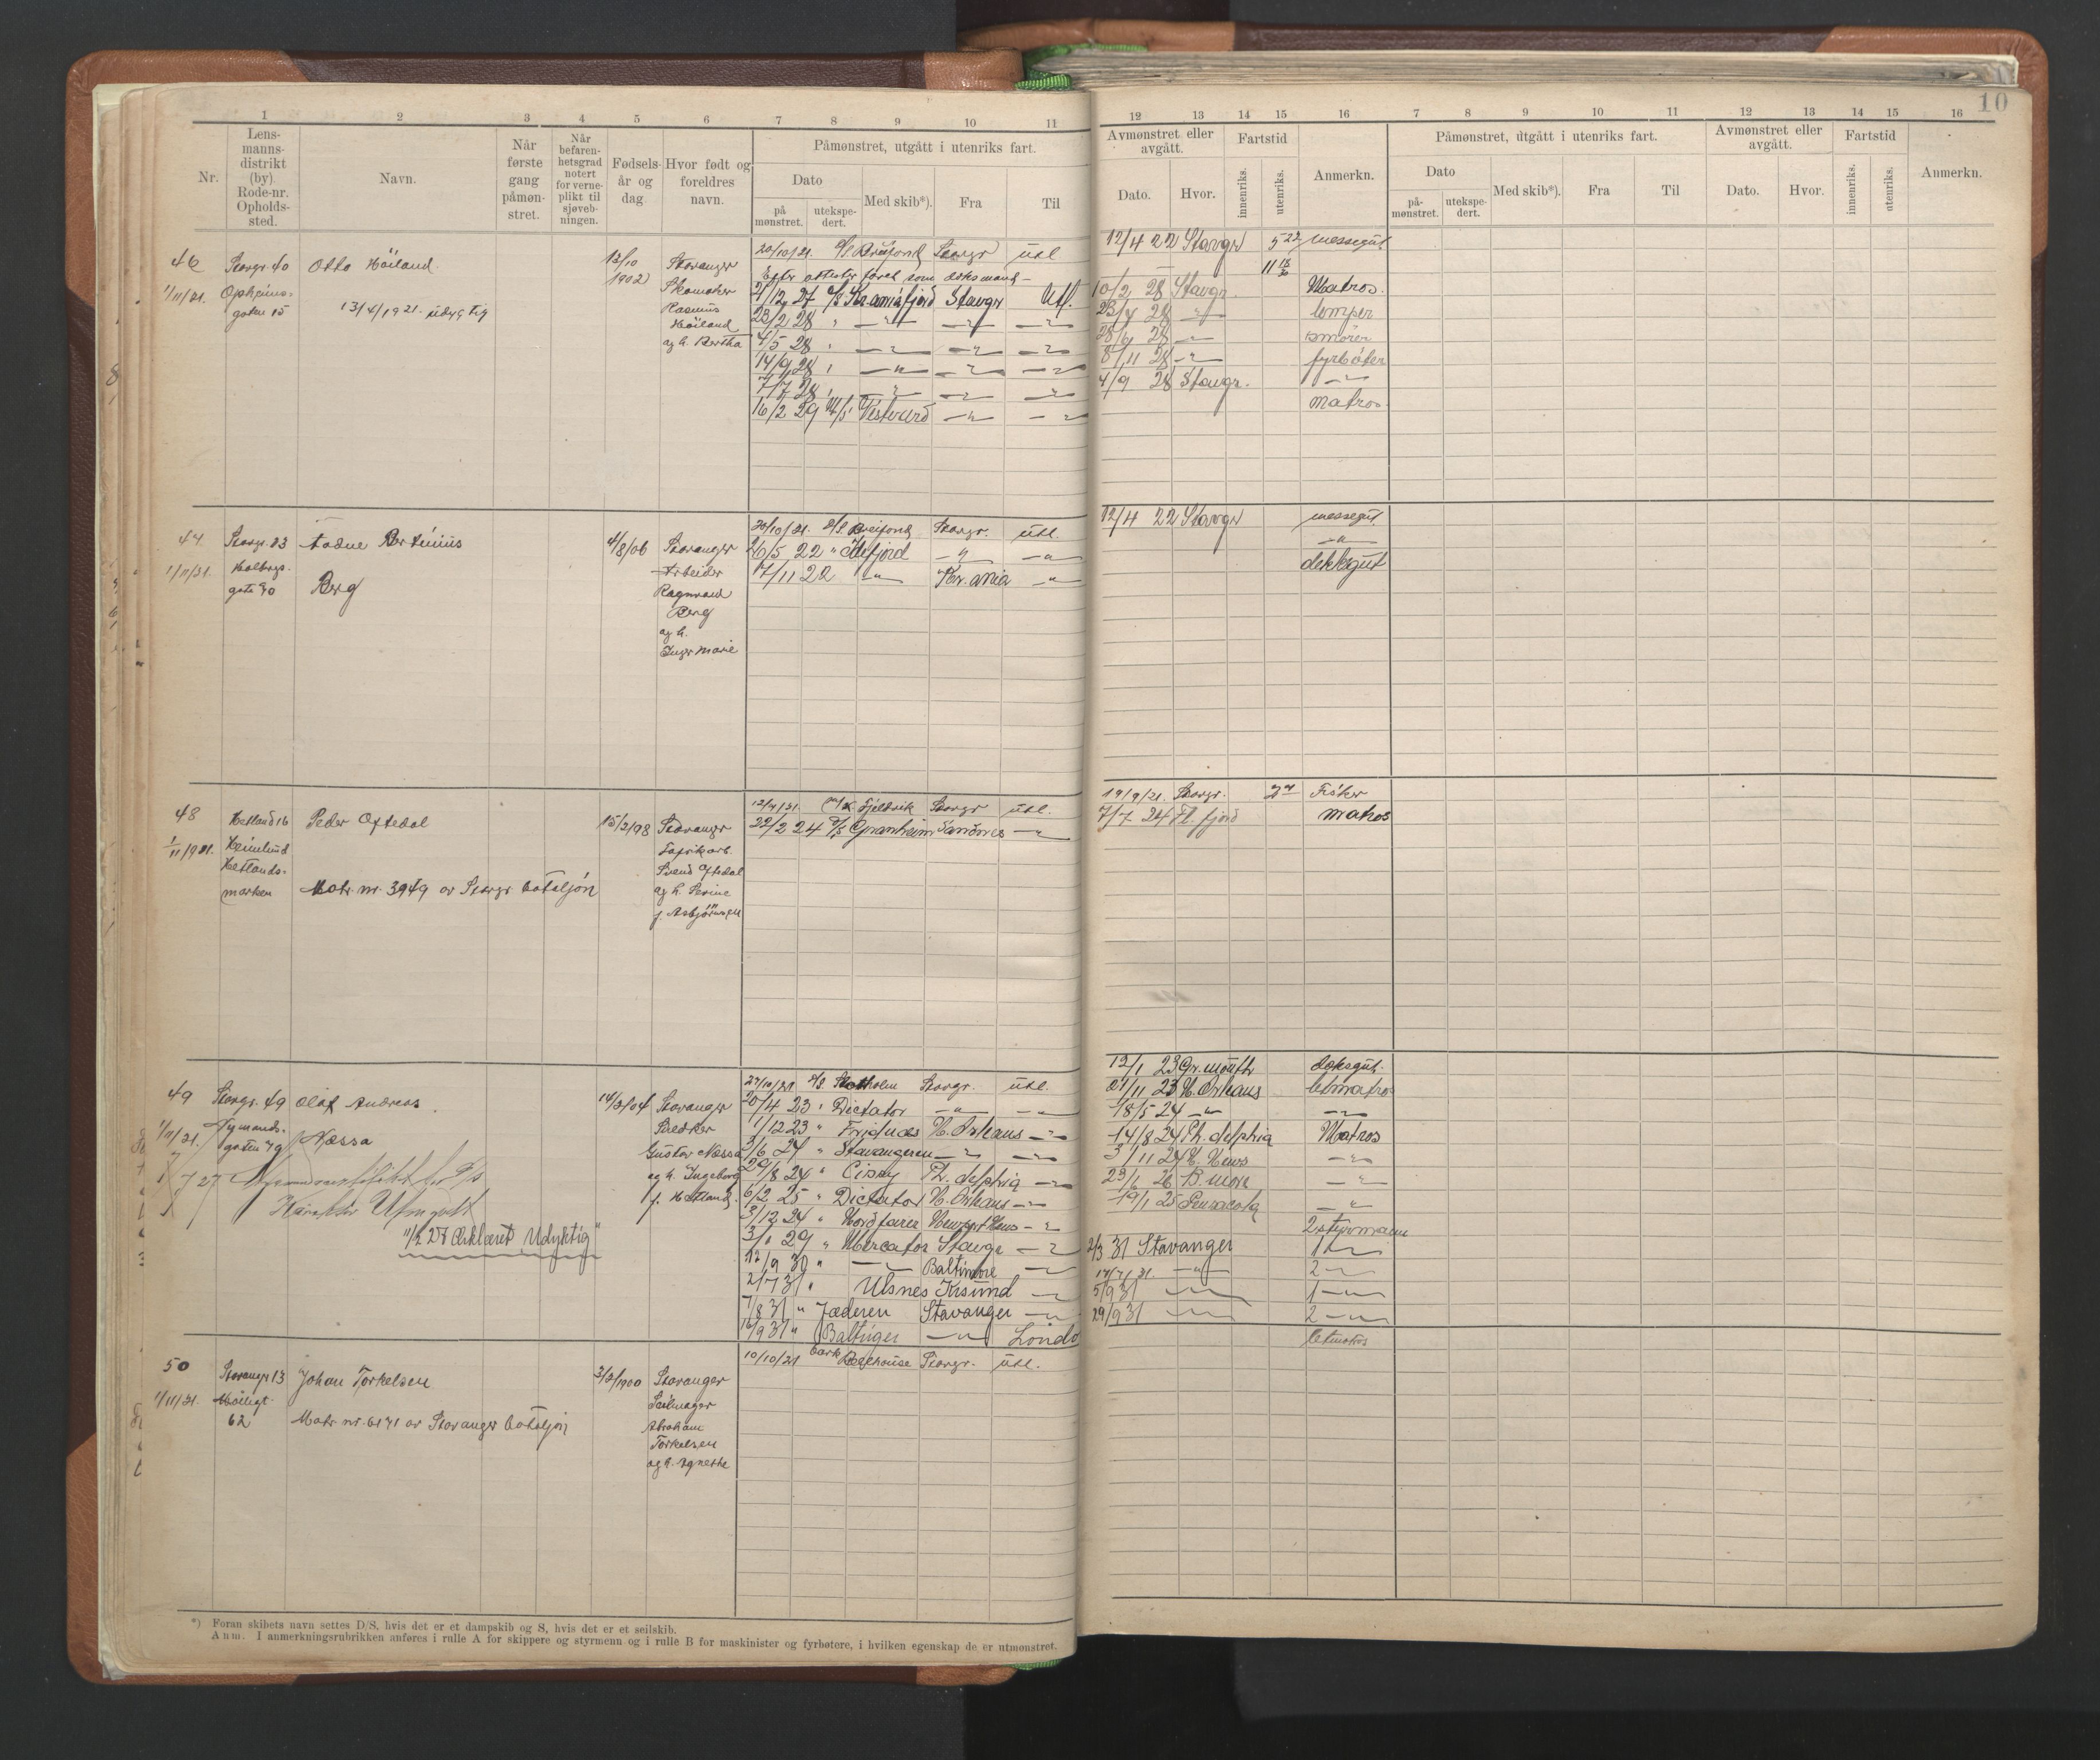 10
1 2 3 4 5 6 7 8 9 10 11
12 13 14 15 16 7 8 9 10 11 12 13 14 15 16
Nr.
Lens-
manns-
distrikt
(by).
Rode-nr.
Opholds-
sted.
Navn.
Når
første
gang
påmøn-
stret.
Når
befaren-
hetsgrad
notert
for verne-
plikt til
sjøveb-
ningen.
Fødsels-
år og
dag.
Hvor født og
foreldres
navn.
Påmønstret, utgått i utenriks fart.
Dato
på-
mønstret.
utekspe-
dert.
Med skib*).
Fra
Til
Avmønstret eller
avgått.
Dato.
Hvor.
Fartstid
innenriks.
utenriks.
Anmerkn.
Påmønstret, utgått i utenriks fart.
Dato
på-
mønstret.
utekspe-
dert.
Med skib*).
Fra
Til
Avmønstret eller
avgått.
Dato.
Hvor.
Fartstid
innenriks.
utenriks.
Anmerkn.
46
1/11/21.
Stavgr. 40
Opheims-
gaten 15
Otto Höiland
13/4/1921 udygtig
12/10
1902
Stavanger
Skomaker
Rasmus
Höiland
og h. Bertha
20/10/21. D/S. Breifond Stavgr utl
21/12 27 D/S Kr.aniafjord Stavgr Utl.
23/2 28
4/5 28
14/9 28
7/7 28
16/2 29 M/S Vestvard
12/4 22 Stavgr messegut
10/2 28 Stavgr. Matros.
23/4 28 lemper
28/6 28 smörer
8/11 28 fyrböter
4/9 28 Stavgr.
matros
47
1/11/21.
Stavgr. 23
Holbergs-
gate 30
Aadne Bertinius
Berg
4/8/06
Stavanger
Arbeider
Ragnvald
Berg
og h.
Inger Marie
20/10/21. D/S. Breifond Stavgr. utl.
26/5 22 " Idefjord
17/11 22 Kr.ania
12/4 22 Stavgr messegut
dekksgut
48
1/11/1921.
Hetland 16
Heimlund
Hetlands-
marken
Peder Oftedal
Matr. nr. 3949 av Stavgr bataljon
15/2/98
Stavanger
Fabrikarb.
Svend Oftedal
og h. Serine
f. Asbjörnsen
12/7/21. M/K Fjeldvik Stavgr utl.
22/2 24 D/S Granheim Sandnes
19/9/21. Stavgr. Fisker
7/7 24 Fl. fjord matros
49
1/11/21.
Stavgr. 49
Nymands-
gaten 79
Olaf Andreas
Næssa
11/2 27 Erklæret "Udyktig"
14/3/04
Stavanger
Snedker
Gustav Næssa
og h. Ingeborg
f. Hetland
27/10/21 D/S. Stokholm Stavgr. utl.
20/4 23 " Dictator
1/12 23 " N. Orleans
3/6 24 " Stavangeren
29/8 24 " Ph. delphia
6/2 25 " Dictator N. Orleans
3/12 24 " Nordfarer Newport News
3/1 29 " Mercator Stavgr
12/9 30 " Baltimore
2/7 31 " Ulsnes Krsund
7/8 31 " Jæderen Stavanger
16/9 31 " Baltrger
12/1 23 Gr.mouth deksgut.
21/11 23 N. Orleans letmatros
18/5 24
14/8 24 Ph. delphia Matros
3/11 24 N. News
23/6 26 B. more
19/1 25 Pensacola
2. styrmann
2/3 31 Stavanger 1
17/7 31. 2
5/9 31 1
29/9 31 2
50
1/11/21.
Stavanger 13
Möllegt.
62
Johan Torkelsen
Matr. nr. 6171 av Stavanger bataljon
3/2/1900
Stavanger
Seilmager
Abraham
Torkelsen
og h. Agnethe
10/10/21 bark Stavgr. utl.
letmatros
*) Foran skibets navn settes D/S, hvis det er et dampskib og S, hvis det er et seilskib.
Anm. I anmerkningsrubrikken anføres i rulle A for skippere og styrmenn og i rulle B for maskinister og fyrbøtere, i hvilken egenskap de er utmønstret.